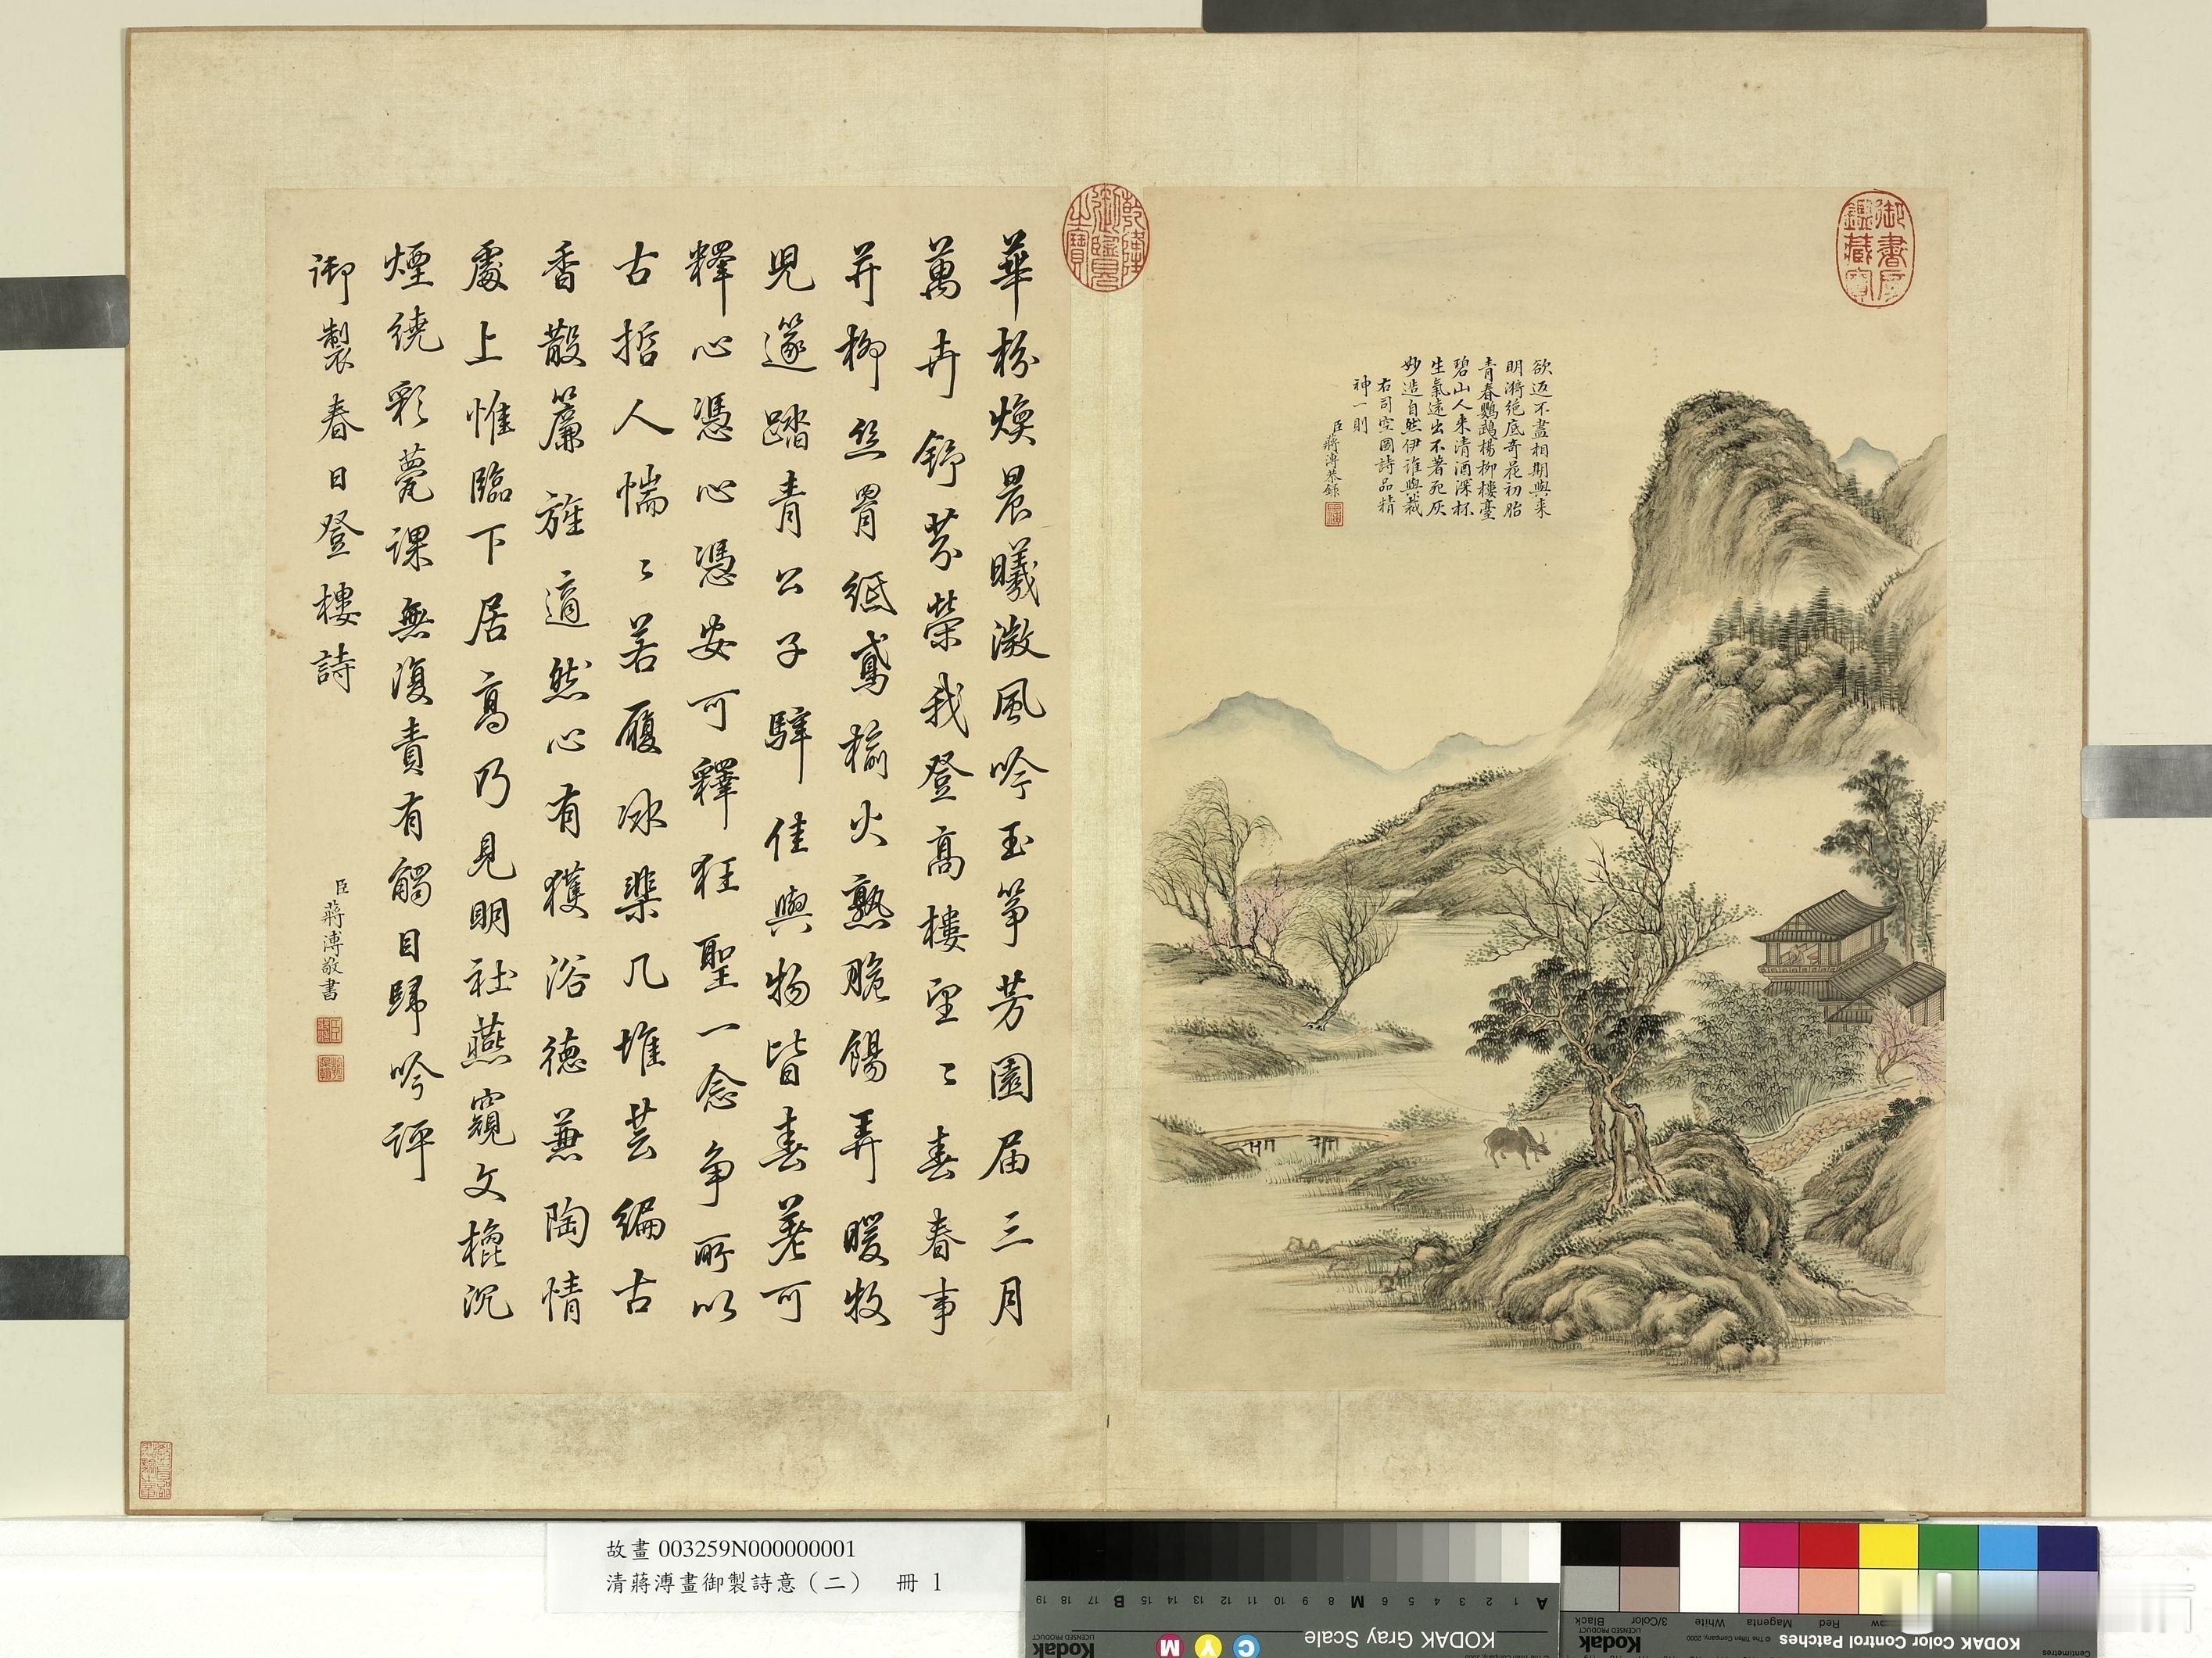 欲返不盡相期與來
明漪絕底奇花初胎
青春鸚鵡楊柳樓臺
碧山人來清酒深杯
生氣遠出不著死灰
妙造自然伊誰與裁
右司空圖詩品精
神一則
臣蔣溥恭錄
御書房鑑藏寶
乾隆御覽之寶
華枌煥晨曦激風吟玉箏芳園届三月
萬卉舒芬榮我登高樓望〻春春事
幷柳絲罥紙鳶榆火熟脆餳弄暖牧
兒邃踏青公子騂佳興物皆春羌可
釋心憑心憑安可釋狂聖一念爭所以
古哲人惴〻若履冰棐几堆芸編古
香散簾旌適然心有獲浴德兼陶情
處上惟臨下居高乃見明社燕窺文櫋沉
煙繞彩甍課無復責有觸目歸吟評
御製春日登樓詩
臣蔣溥敬書
故畫 003259N000000001
清蔣溥畫御製詩意（二） 冊 1
KODAK Gray Scale
C Y M
Kodak
LICENSED PRODUCT
A 1 2 3 4 5 6 M 8 9 10 11 12 13 14 15 B 17 18 19
KODAK Color Control Patches
Kodak
LICENSED PRODUCT
© The Tiffen Company, 2000
Centimetres
Red Magenta White 3/Color Black